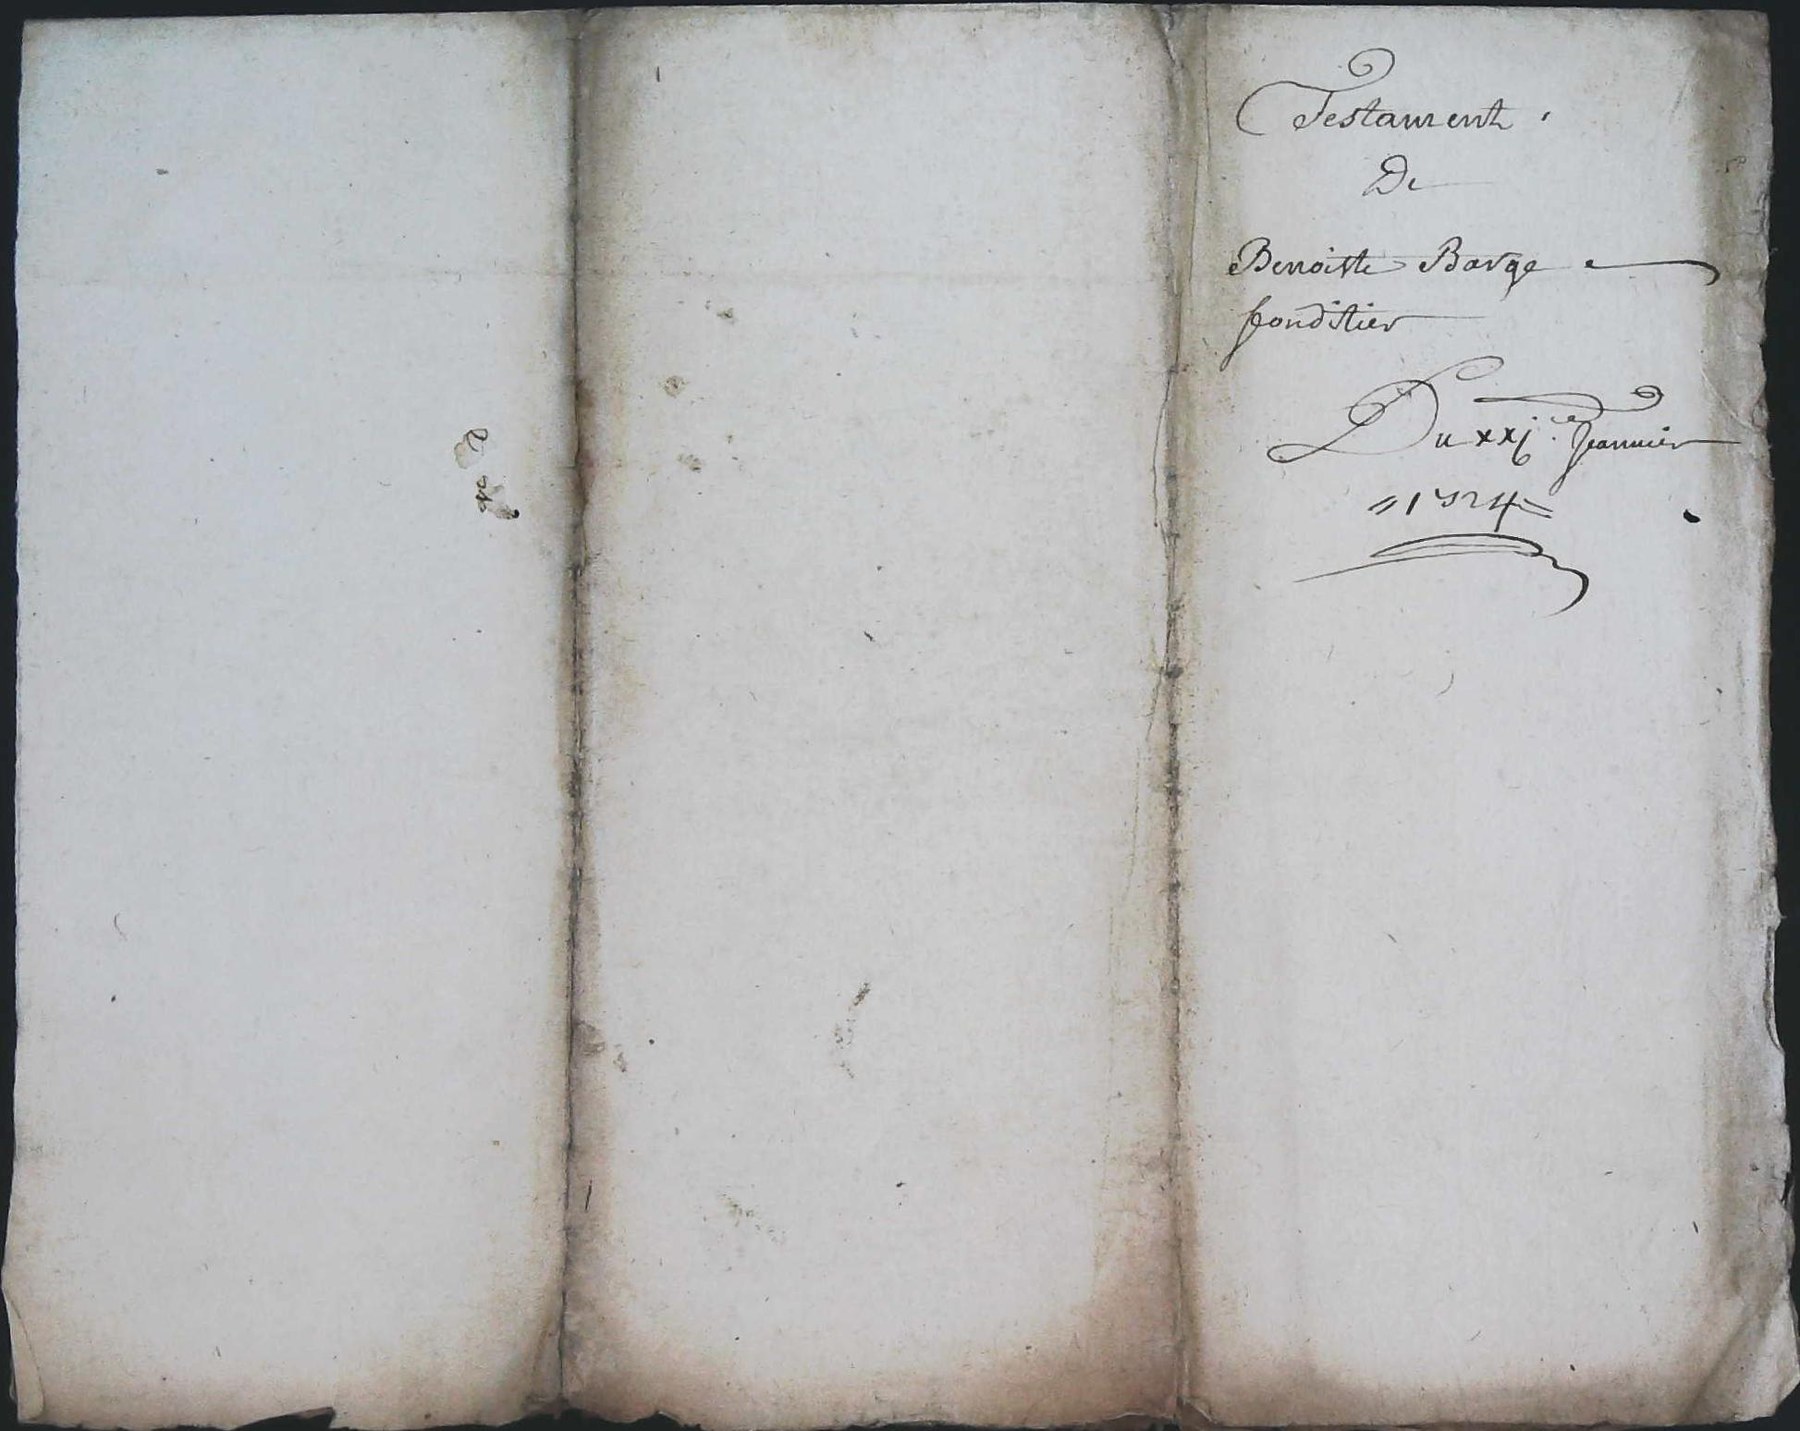 Testament
De
Benoiste Barge
fonditier
Du xxj.e Jeanvier
1724